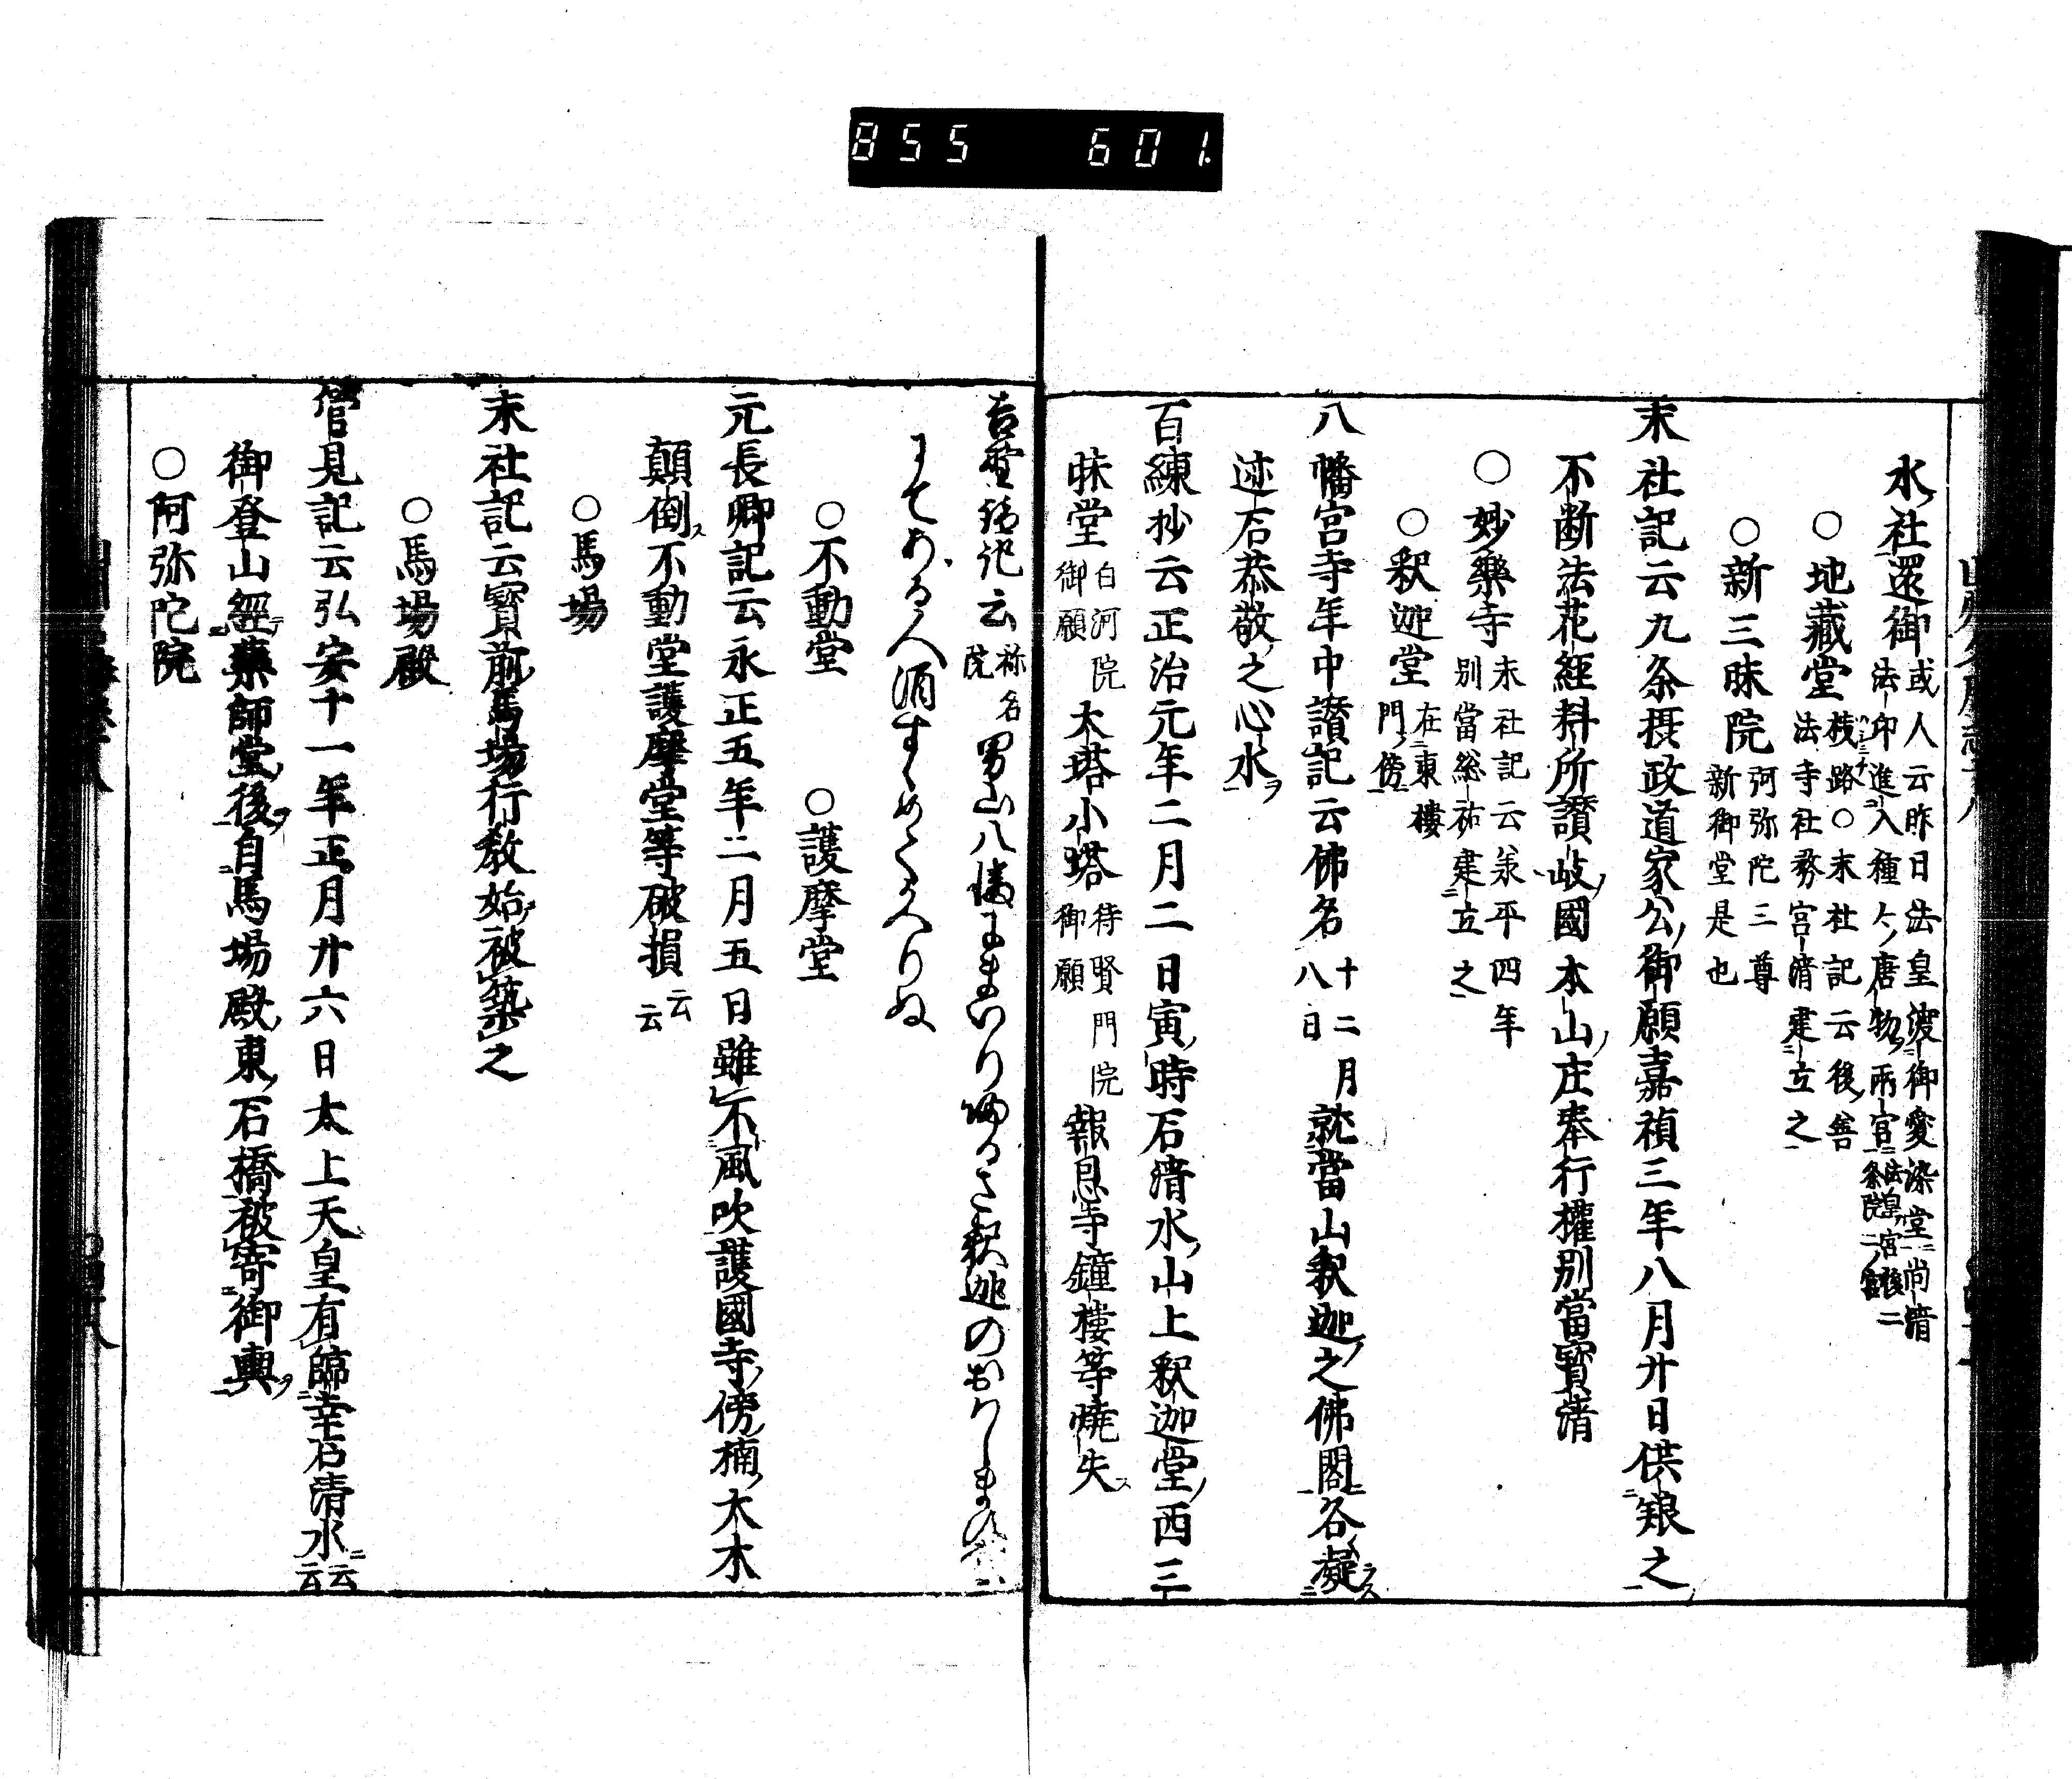 855 601.
水社還御或人云昨日法皇渡御愛染堂尚清
法印進入種々唐物両宮法皇宮後二条院二宮
○地藏堂桟路○末社記云後善
法寺社務宮清建立之
○新三昧院弥陀三尊
新御堂是也
末社記云九条摂政道家公御願嘉禎三年八月廿日供粮之
不断法花経料所讃岐國本山庄奉行權別當寳清
○妙藥寺末社記云承平四年
別當総祐建立之
○釈迦堂在東樓
門傍
八幡宮寺年中讃記云佛名十二月
八日就當山釈迦之佛閣各凝
迹石恭敬之心水
百練抄云正治元年二月二日寅時石清水山上釈迦堂西三
昧堂白河院
御願大塔小塔待賢門院
御願報恩寺鐘樓等焼失
云称名
院男山八幡にまいり
○不動堂 ○護摩堂
元長卿記云永正五年二月五日雖不風吹護國寺傍楠大木
顛倒不動堂護摩堂等破損云云
○馬場
末社記云寳前馬場行教始被築之
○馬場殿
管見記云弘安十一年正月廿六日太上天皇有臨幸石清水云云
御登山經藥師堂後自馬場殿東石橋被寄御輿
○阿弥陀院